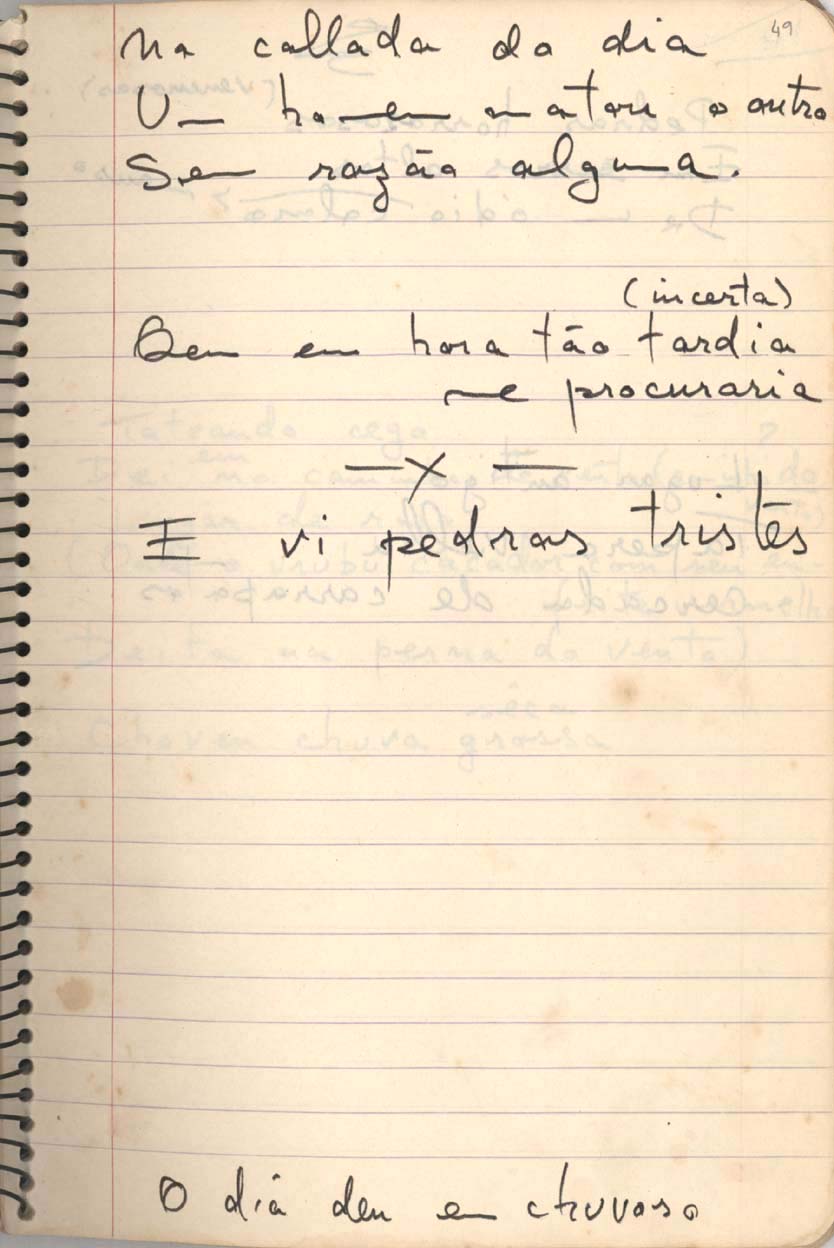 49
Na callada do dia
Um homem matou o outro
Sem razão alguma.
(incerta)
Quem em hora tão tardia
me procuraria
—x—
E vi pedras tristes
O dia deu em chuvoso